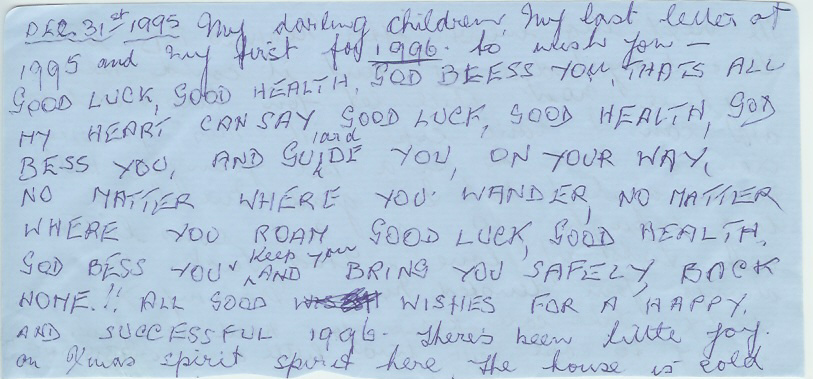 DEC. 31st 1995 My darling children, My last letter of
1995 and my first for 1996. to wish you —
GOOD LUCK, GOOD HEALTH, GOD BEESS YOU, THATS ALL
MY HEART CAN SAY GOOD LUCK, GOOD HEALTH, GOD
BESS YOU, AND GUIDE YOU, ON YOUR WAY,
NO MATTER WHERE YOU WANDER, NO MATTER
WHERE YOU ROAM GOOD LUCK, GOOD HEALTH,
GOD BESS YOU keep you AND BRING YOU SAFELY, BACK
HOME.!! ALL GOOD WISHES FOR A HAPPY,
AND SUCCESSFUL 1996. There's been little joy.
or Xmas spirit spirit here the house is cold